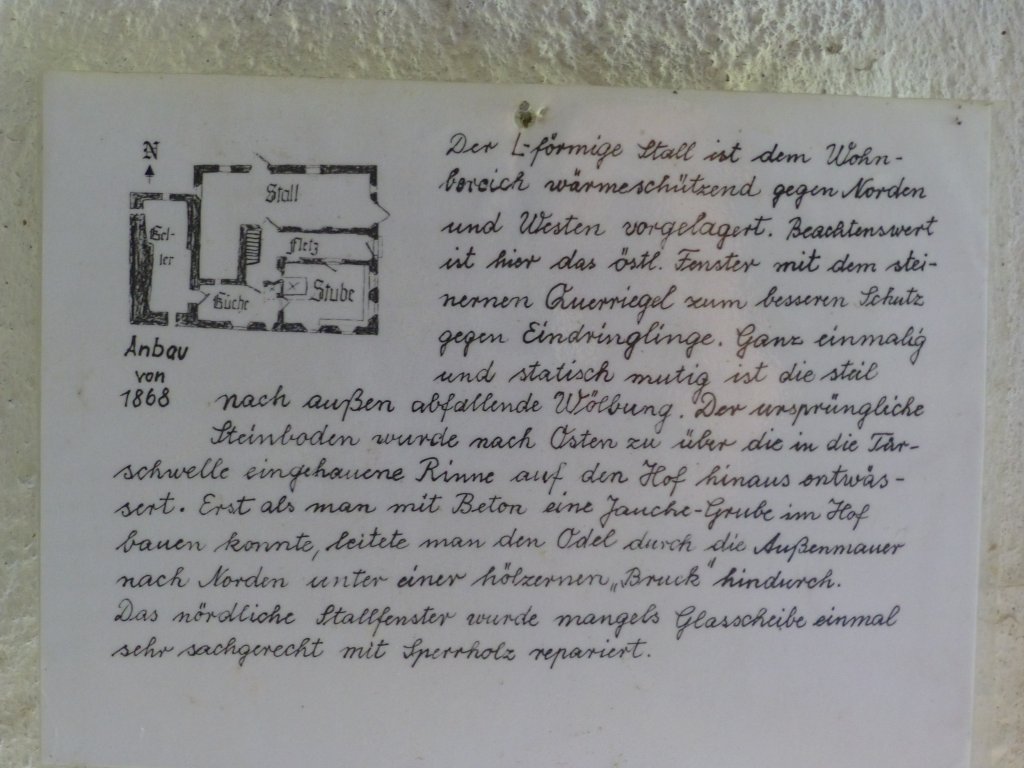 N
Stall
Kel-
ler
Fletz
Küche
Stube
Anbau
von
1868
Der L-förmige Stall ist dem Wohn-
bereich wärmeschützend gegen Norden
und Westen vorgelagert. Beachtenswert
ist hier das östl. Fenster mit dem stei-
nernen Querriegel zum besseren Schutz
gegen Eindringlinge. Ganz einmalig
und statisch mutig ist die steil
nach außen abfallende Wölbung. Der ursprüngliche
Steinboden wurde nach Osten zu über die in die Tür-
schwelle eingehauene Rinne auf den Hof hinaus entwäs-
sert. Erst als man mit Beton eine Jauche-Grube im Hof
bauen konnte, leitete man den Odel durch die Außenmauer
nach Norden unter einer hölzernen „Bruck" hindurch.
Das nördliche Stallfenster wurde mangels Glasscheibe einmal
sehr sachgerecht mit Sperrholz repariert.